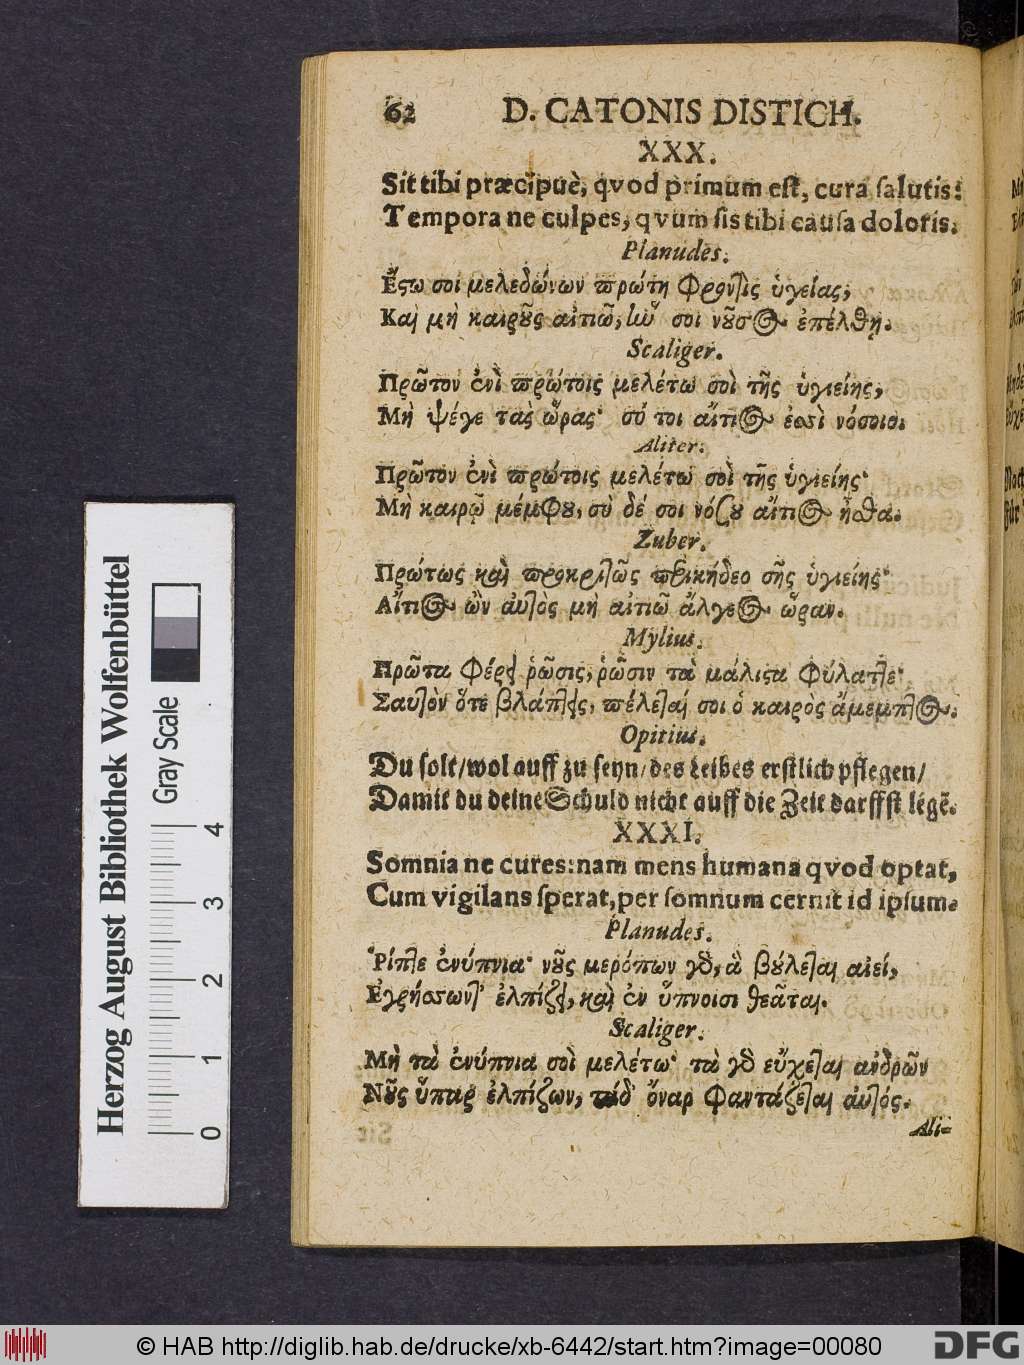 62 D. CATONIS DISTICH.
XXX.
Sit tibi præcipuè, qvod primum eſt, cura ſalutis:
Tempora ne culpes, qvum ſis tibi cauſa doloris.
Planudes.
Ἔςω σοι μελεδώνων πρώτη φροντὶς ὑγείας,
Καὶ μὴ καιροῦς αἰτιῶ, ἰὼ σοι νοῦσος ἐπέλθῃ.
Scaliger.
Πρῶτον ἐνὶ πρώτοις μελέτω σοὶ τῆς ὑγιείης,
Μὴ ψέγε τὰς ὥρας· σύ τοι αἴτιος ἐσσὶ νόσοισι.
Aliter.
Πρῶτον ἐνὶ πρώτοις μελέτω σοὶ τῆς ὑγιείης·
Μὴ καιρῷ μέμφου, σὺ δέ σοι νόσου αἴτιος ἦσθα.
Zuber.
Πρώτως καὶ προκριτῶς περικήδεο σῆς ὑγιείης·
Αἴτιος ὢν αὐτὸς μὴ αἰτιῶ ἄλγεος ὧραν.
Mylius.
Πρῶτα φέρει ῥῶσις, ῥῶσιν τὰ μάλιςα φύλατ]ε·
Σαυτὸν ὅτε βλάπτεις, πέλεται σοι ὁ καιρὸς ἄμεμπτος.
Opitius.
Du ſolt/wol auff zu ſeyn/des Leibes erſtlich pflegen/
Damit du deine Schuld nicht auff die Zeit darffſt legẽ.
XXXI.
Somnia ne cures: nam mens humana qvod optat,
Cum vigilans ſperat, per ſomnum cernit id ipſum.
Planudes.
Ῥίπτε ἐνύπνια· νοῦς μερόπων γὸ, ἃ βούλεται αἰεί,
Ἐγρήσσων]' ἐλπίζει, καὶ ἐν ὕπνοισι θεᾶται.
Scaliger.
Μὴ τὰ ἐνύπνια σοὶ μελέτω· τὰ γὸ εὔχεται ἀνδρῶν
Νοῦς ὕπαρ ἐλπίζων, τάδ' ὄναρ φαντάζεται αὐτός.
Ali-
Herzog August Bibliothek Wolfenbüttel
Gray Scale
0 1 2 3 4
© HAB http://diglib.hab.de/drucke/xb-6442/start.htm?image=00080
DFG